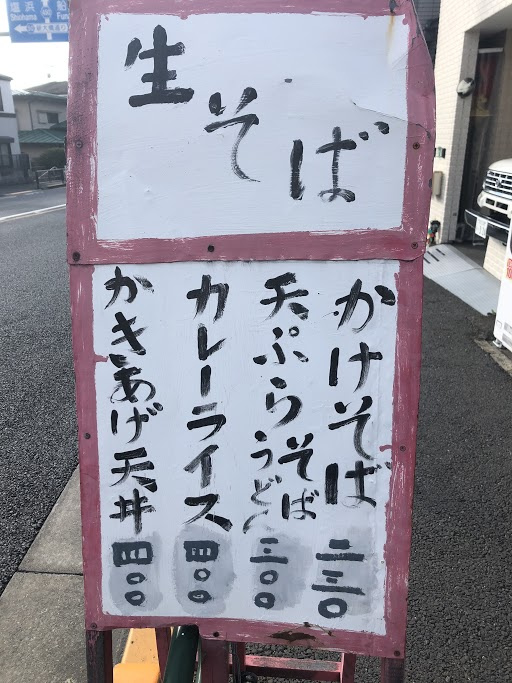 生そば
かけそば 二三〇
天ぷらそばうどん 三〇〇
カレーライス 四〇〇
かきあげ天丼 四〇〇
塩浜
Shiohama
船
Fun